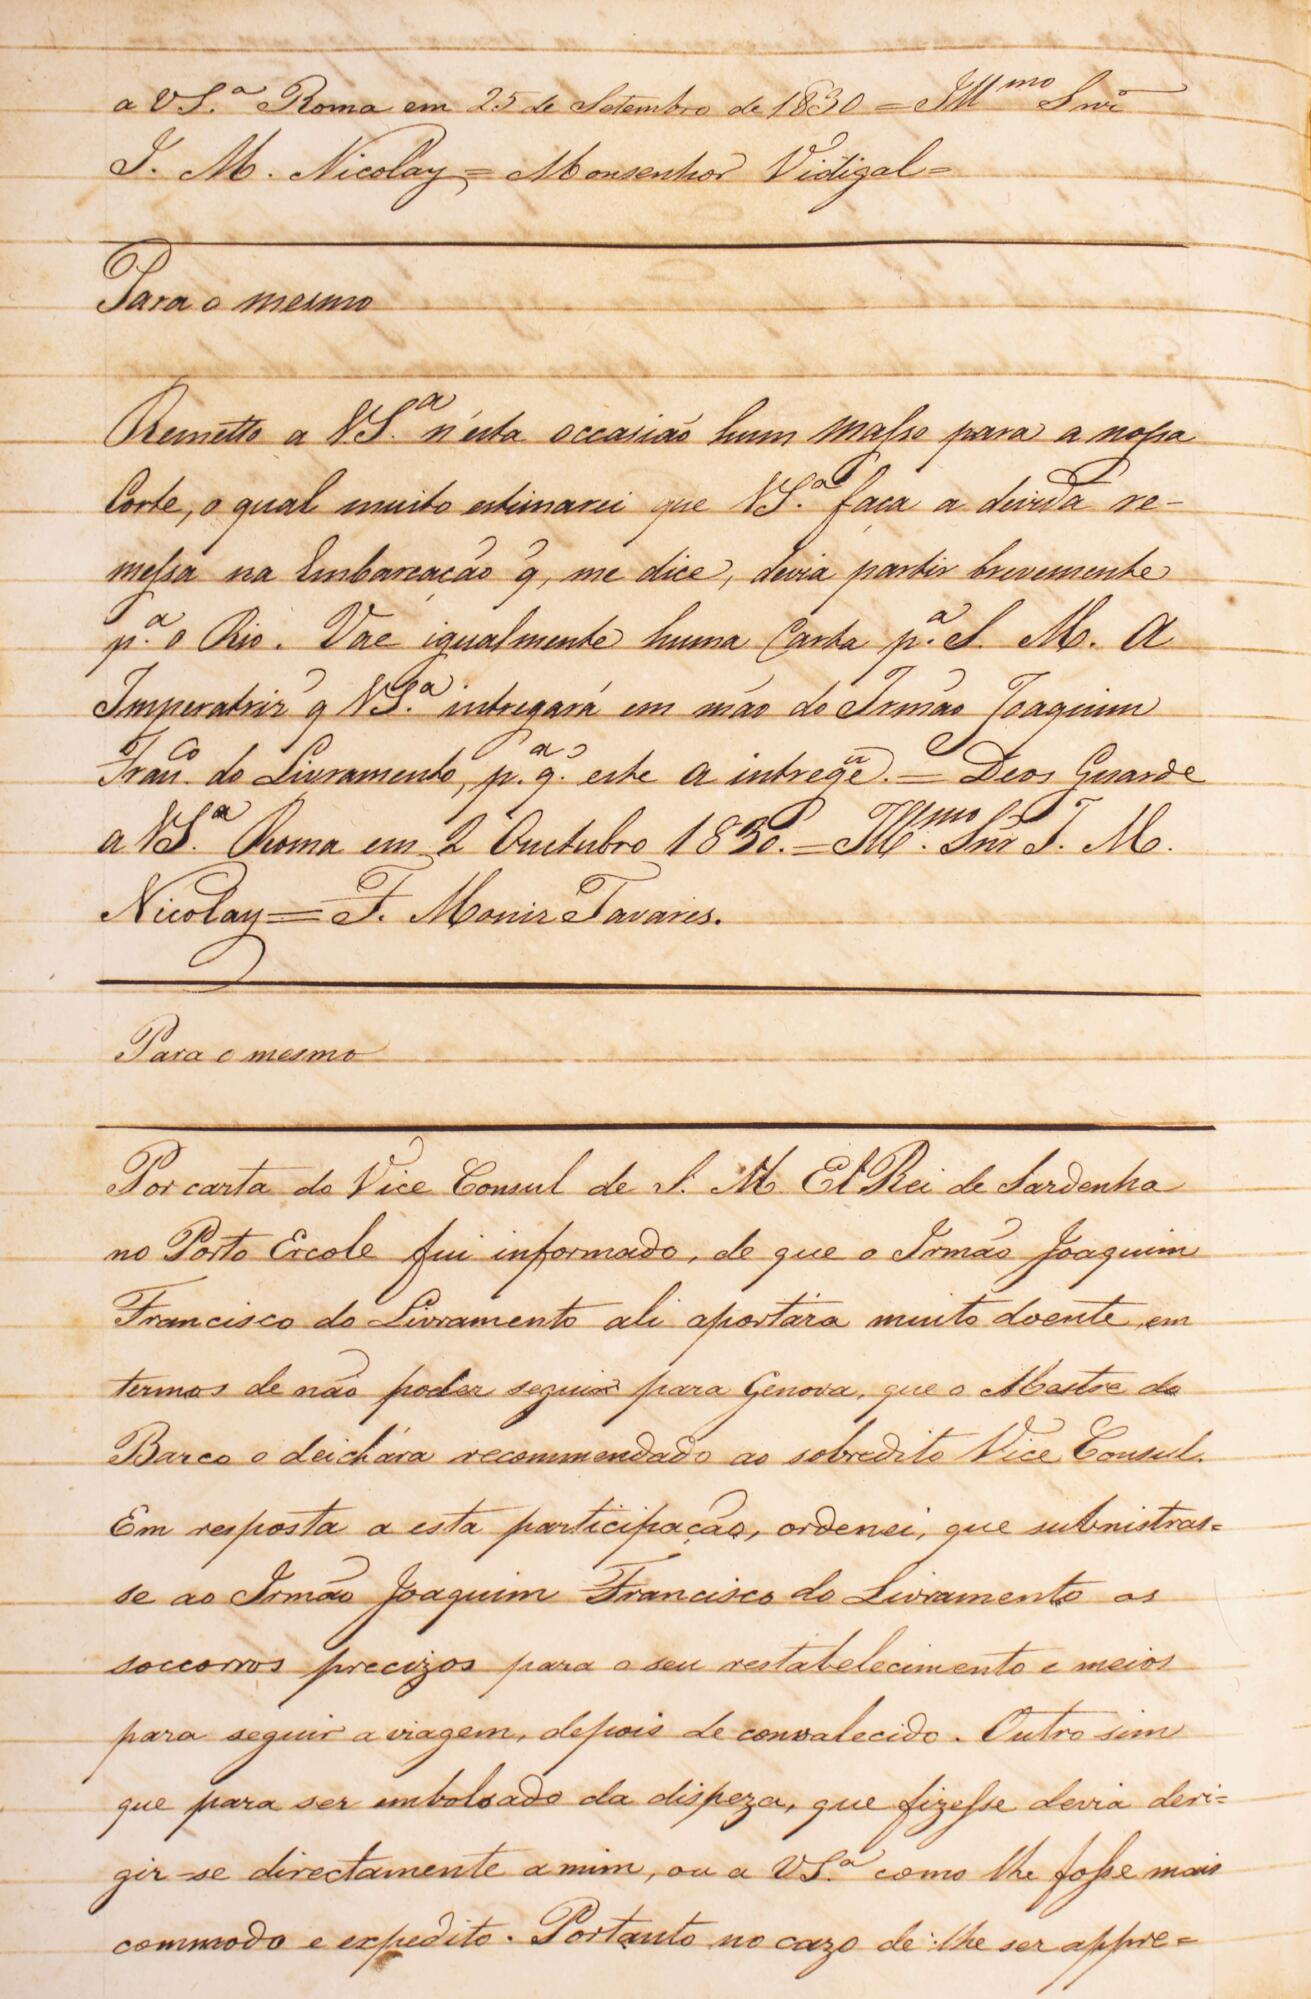 a VS.ª Roma em 25 de Setembro de 1830 = Ill.mo Snr
J. M. Nicolay = Monsenhor Vidigal =
Para o mesmo
Remetto a VS.ª n'esta occasião hum Masso para a nossa
Corte, o qual muito estimarei que VS.ª faça a devida re-
messa na Embarcação q, me dice, devia partir brevemente
p.ª o Rio. Vae igualmente huma Carta p.ª S. M. A
Imperatriz q VS.ª intregará em mão do Irmão Joaquim
Fran.co do Livramento, p.ª q. este a intregẽ. = Deos Guarde
a VS.ª Roma em 2 Outubro 1830. = Ill.mo Snr J. M.
Nicolay = F. Moniz Tavares.
Para o mesmo
Por carta do Vice Consul de S. M. El Rei de Sardenha
no Porto Ercole fui informado, de que o Irmão Joaquim
Francisco do Livramento ali aportára muito doente, em
termos de não poder seguir para Genova, que o Mestre do
Barco o deichára recommendado ao sobredito Vice Consul.
Em resposta a esta participação, ordenei, que subnistras=
se ao Irmão Joaquim Francisco do Livramento os
soccorros precizos para o seu restabelecimento e meios
para seguir a viagem, depois de convalecido. Outro sim
que para ser embolsado da dispeza, que fizesse devia deri=
gir-se directamente a mim, ou a VS.ª como lhe fosse mais
commodo e expedito. Portanto no cazo de lhe ser appre=